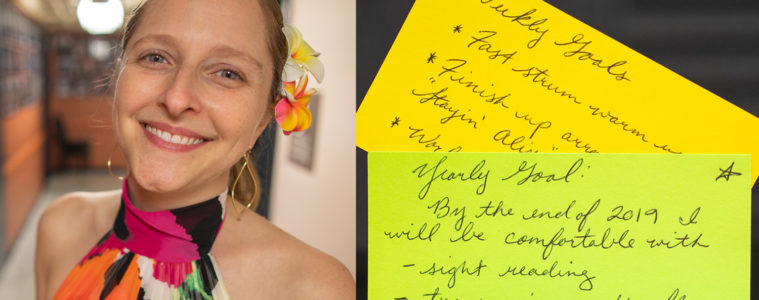 Weekly Goals
* Fast strum warm u
* Finish up arra
"Stayin' Aliv
* Wor
Yearly Goal:
By the end of 2019 I
will be comfortable with
- sight reading